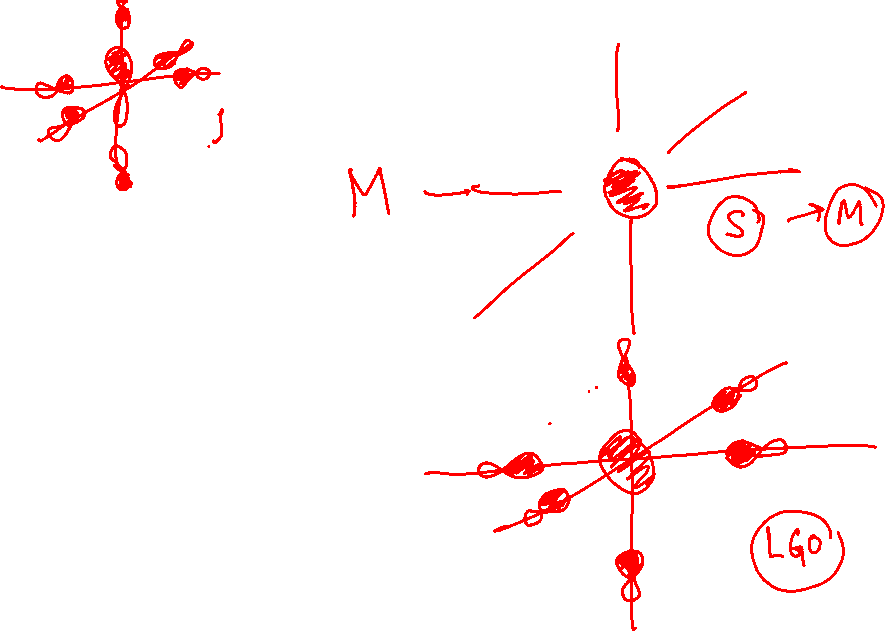 M
S → M
LGO